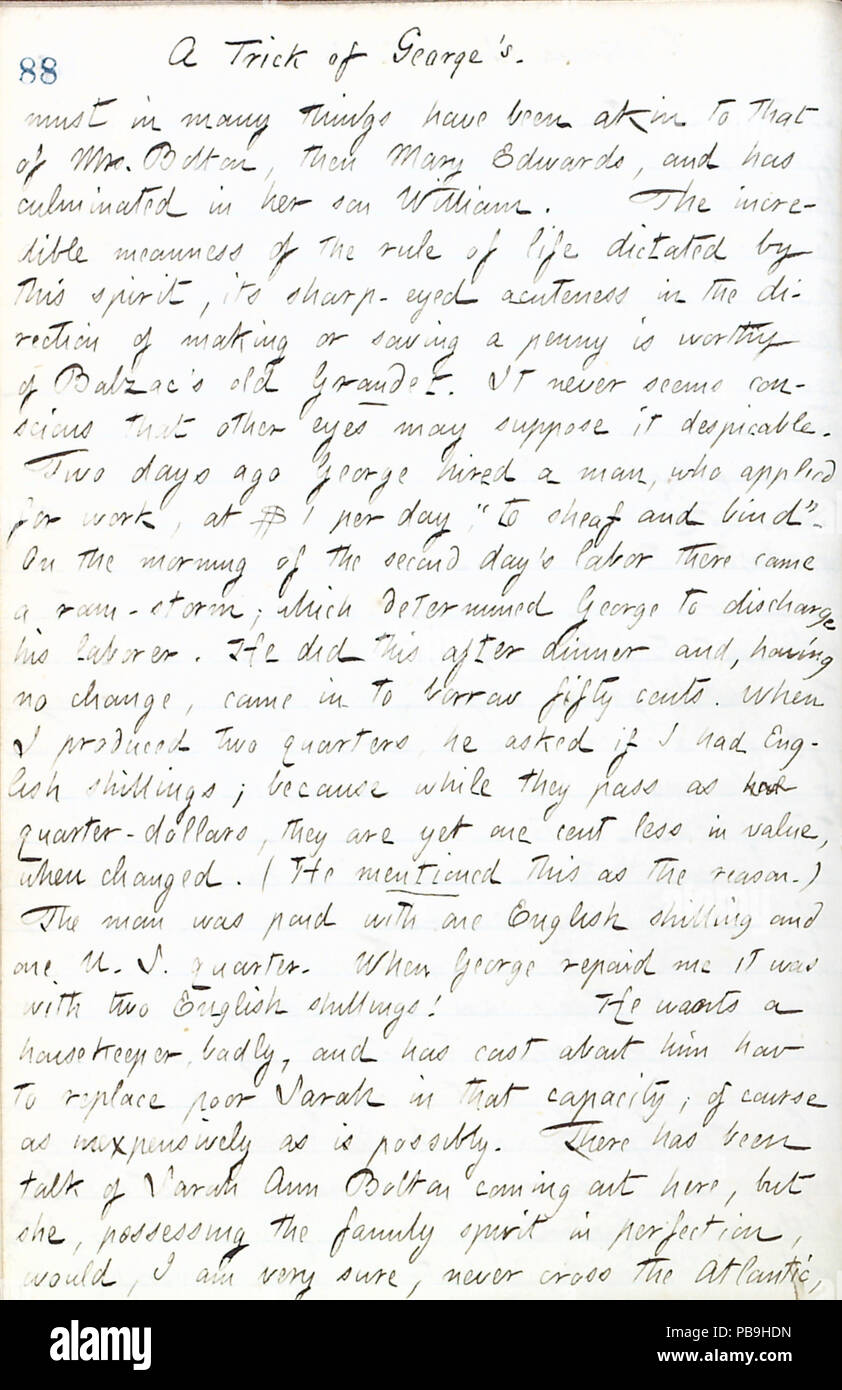 A Trick of George's.
88
must in many things have been akin to that
of Mrs. Bolton, then Mary Edwards, and has
culminated in her son William. The incre-
dible meanness of the rule of life dictated by
this spirit, its sharp-eyed acuteness in the di-
rection of making or saving a penny is worthy
of Balzac's old Grandet. It never seems con-
scious that other eyes may suppose it despicable.
Two days ago George hired a man, who applied
for work, at $1 per day, "to sheaf and bind".
On the morning of the second day's labor there came
a rain-storm, which determined George to discharge
his laborer. He did this after dinner and, having
no change, came in to borrow fifty cents. When
I produced two quarters he asked if I had Eng-
lish shillings; because while they pass as
quarter-dollars, they are yet one cent less in value,
when changed. (He mentioned this as the reason.)
The man was paid with one English shilling and
one U. S. quarter. When George repaid me it was
with two English shillings! He wants a
housekeeper, badly, and has cast about him how
to replace poor Sarah in that capacity, of course
as inexpensively as is possibly. There has been
talk of Sarah Ann Bolton coming out here, but
she, possessing the family spirit in perfection,
would, I am very sure, never cross the Atlantic,
alamy
Image ID: PB9HDN
www.alamy.com